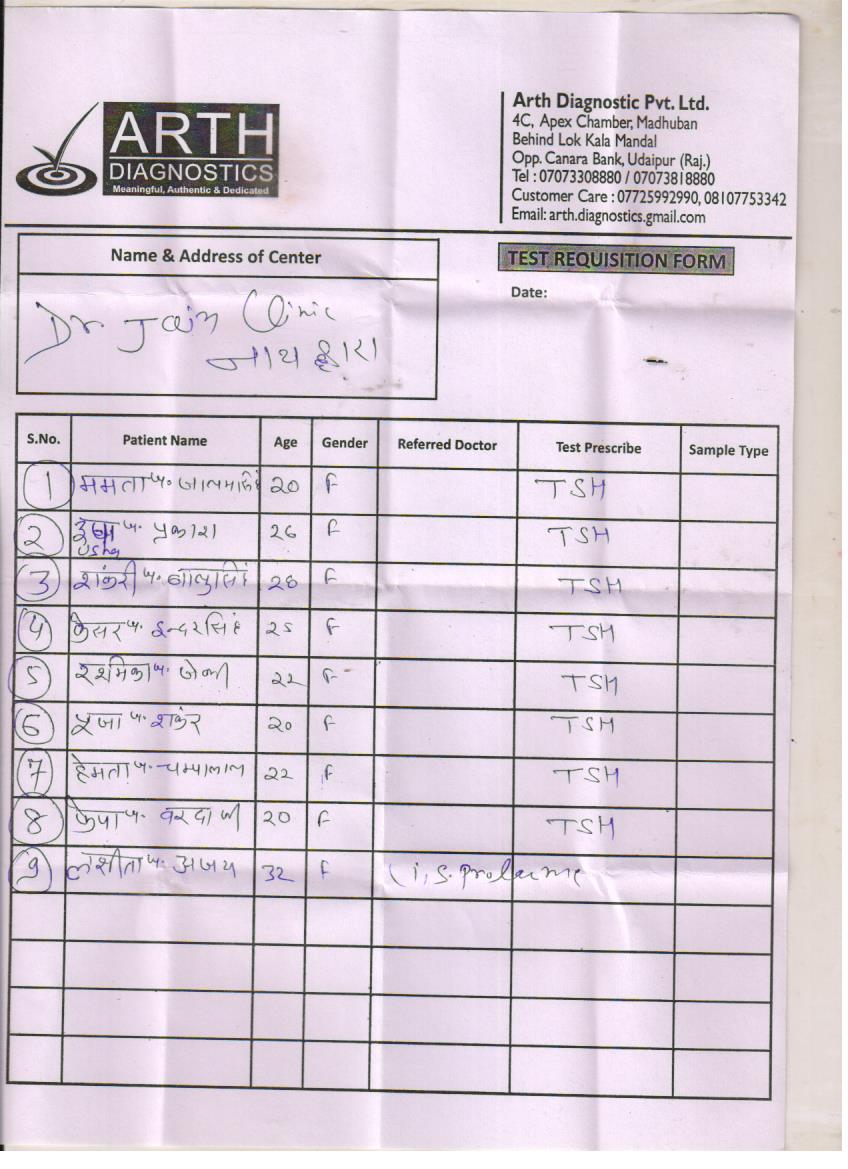 ARTH
DIAGNOSTICS
Meaningful, Authentic & Dedicated
Arth Diagnostic Pvt. Ltd.
4C, Apex Chamber, Madhuban
Behind Lok Kala Mandal
Opp. Canara Bank, Udaipur (Raj.)
Tel : 07073308880 / 07073818880
Customer Care : 07725992990, 08107753342
Email: arth.diagnostics.gmail.com
Name & Address of Center
TEST REQUISITION FORM
Date:
Dr Jain Clinic
नाथद्वारा
S.No. Patient Name Age Gender Referred Doctor Test Prescribe Sample Type
1 ममता प. 20 F TSH
2 प. प्रकाश 26 F TSH
Usha
3 शंकरी प. 28 F TSH
4 केसर प. इन्दरसिंह 25 F TSH
5 प. 22 F TSH
6 पूजा प. शंकर 20 F TSH
7 हेमता प. चम्पालाल 22 F TSH
8 प. 20 F TSH
9 प. अजय 32 F